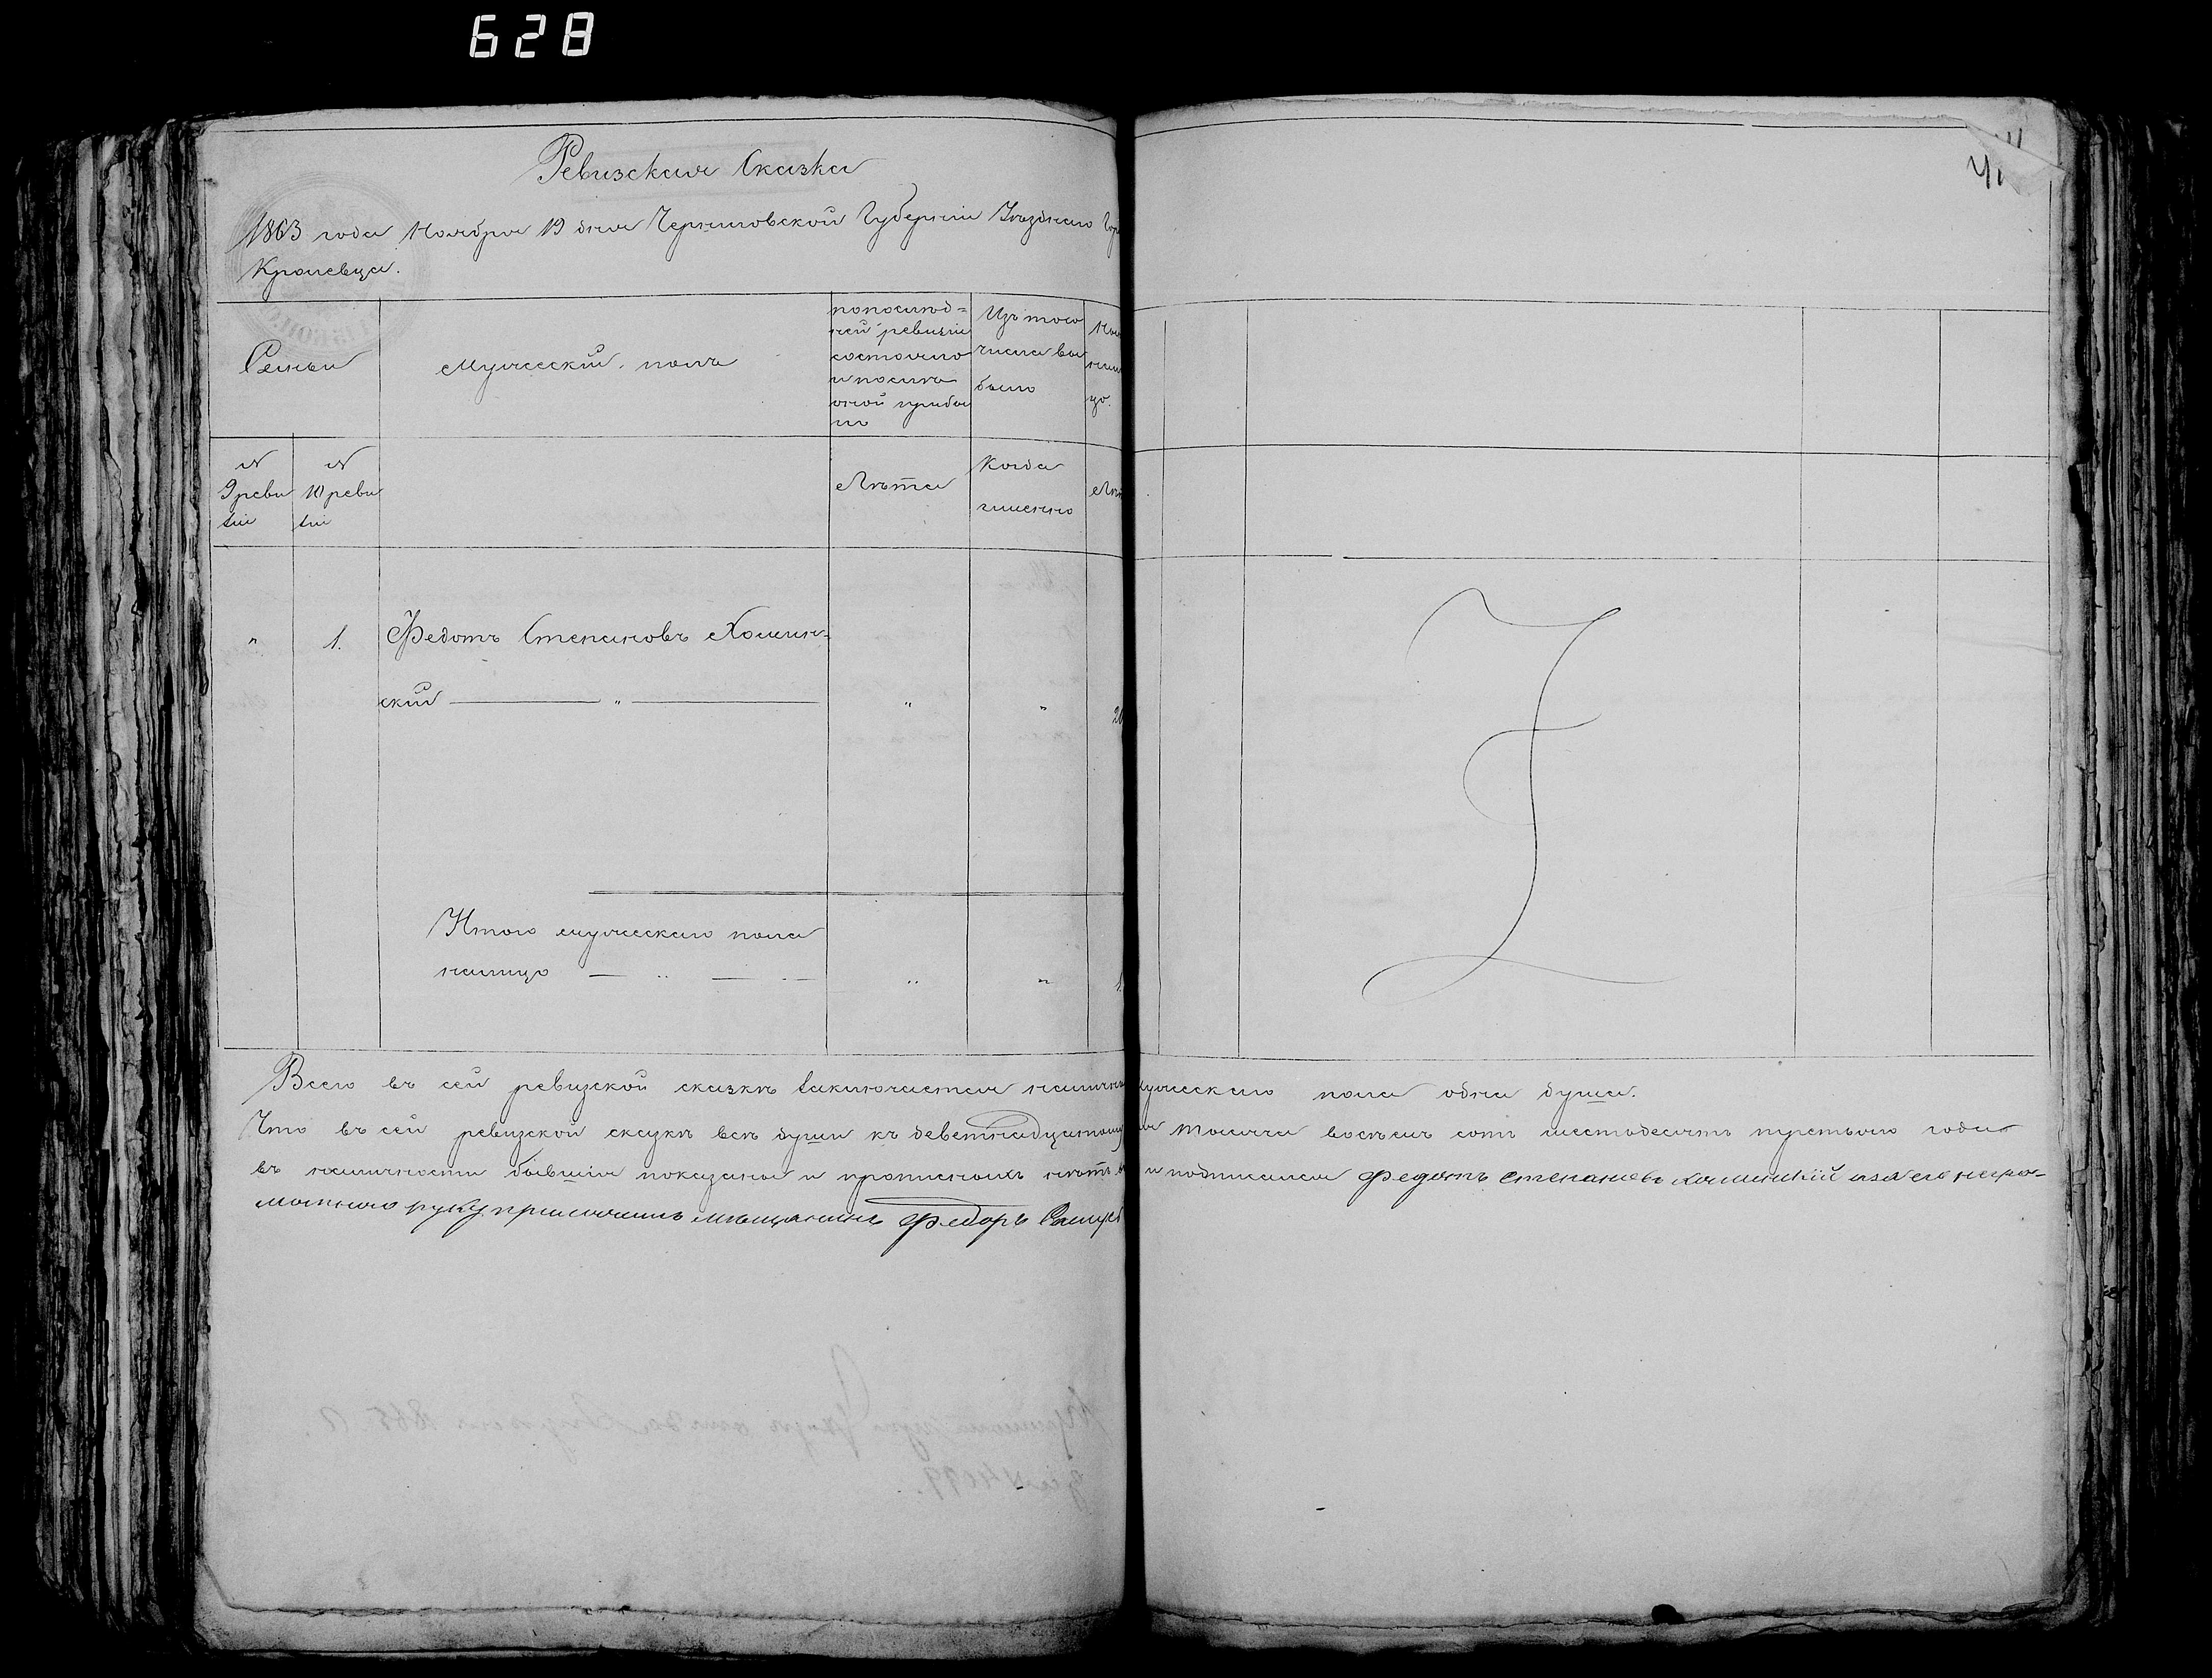 628
Ревизская Сказка
1863 года Ноября 19 дня Черниговской Губерніи Уѣзднаго
Кролевца.
Семьи
Мужескій полъ
попослѣд=
ней ревизіи
состояло
и послѣ
оной прибы
ло
Изъ того
числа вы
было
Ны
не
цо.
N
9 реви
зіи
N
10 реви
зіи
Лѣта
Когда
именно
Лѣ
" 1. Федотъ Степановъ Холмин-
скій " " " 20
Итого мужескаго пола
налицо " " " 1.
Всего въ сей ревизской сказкѣ заключается мужескаго пола одна душа.
Что въ сей ревизской сказкѣ всѣ души къ деветнадцатому тысяча восѣемь сотъ шестьдесятъ третьяго года
въ наличности бывшія показаны и прописныхъ нѣтъ и подписался Федотъ Степановъ а за его негра-
мотнаго руку приложилъ мѣщанинъ Федоръ